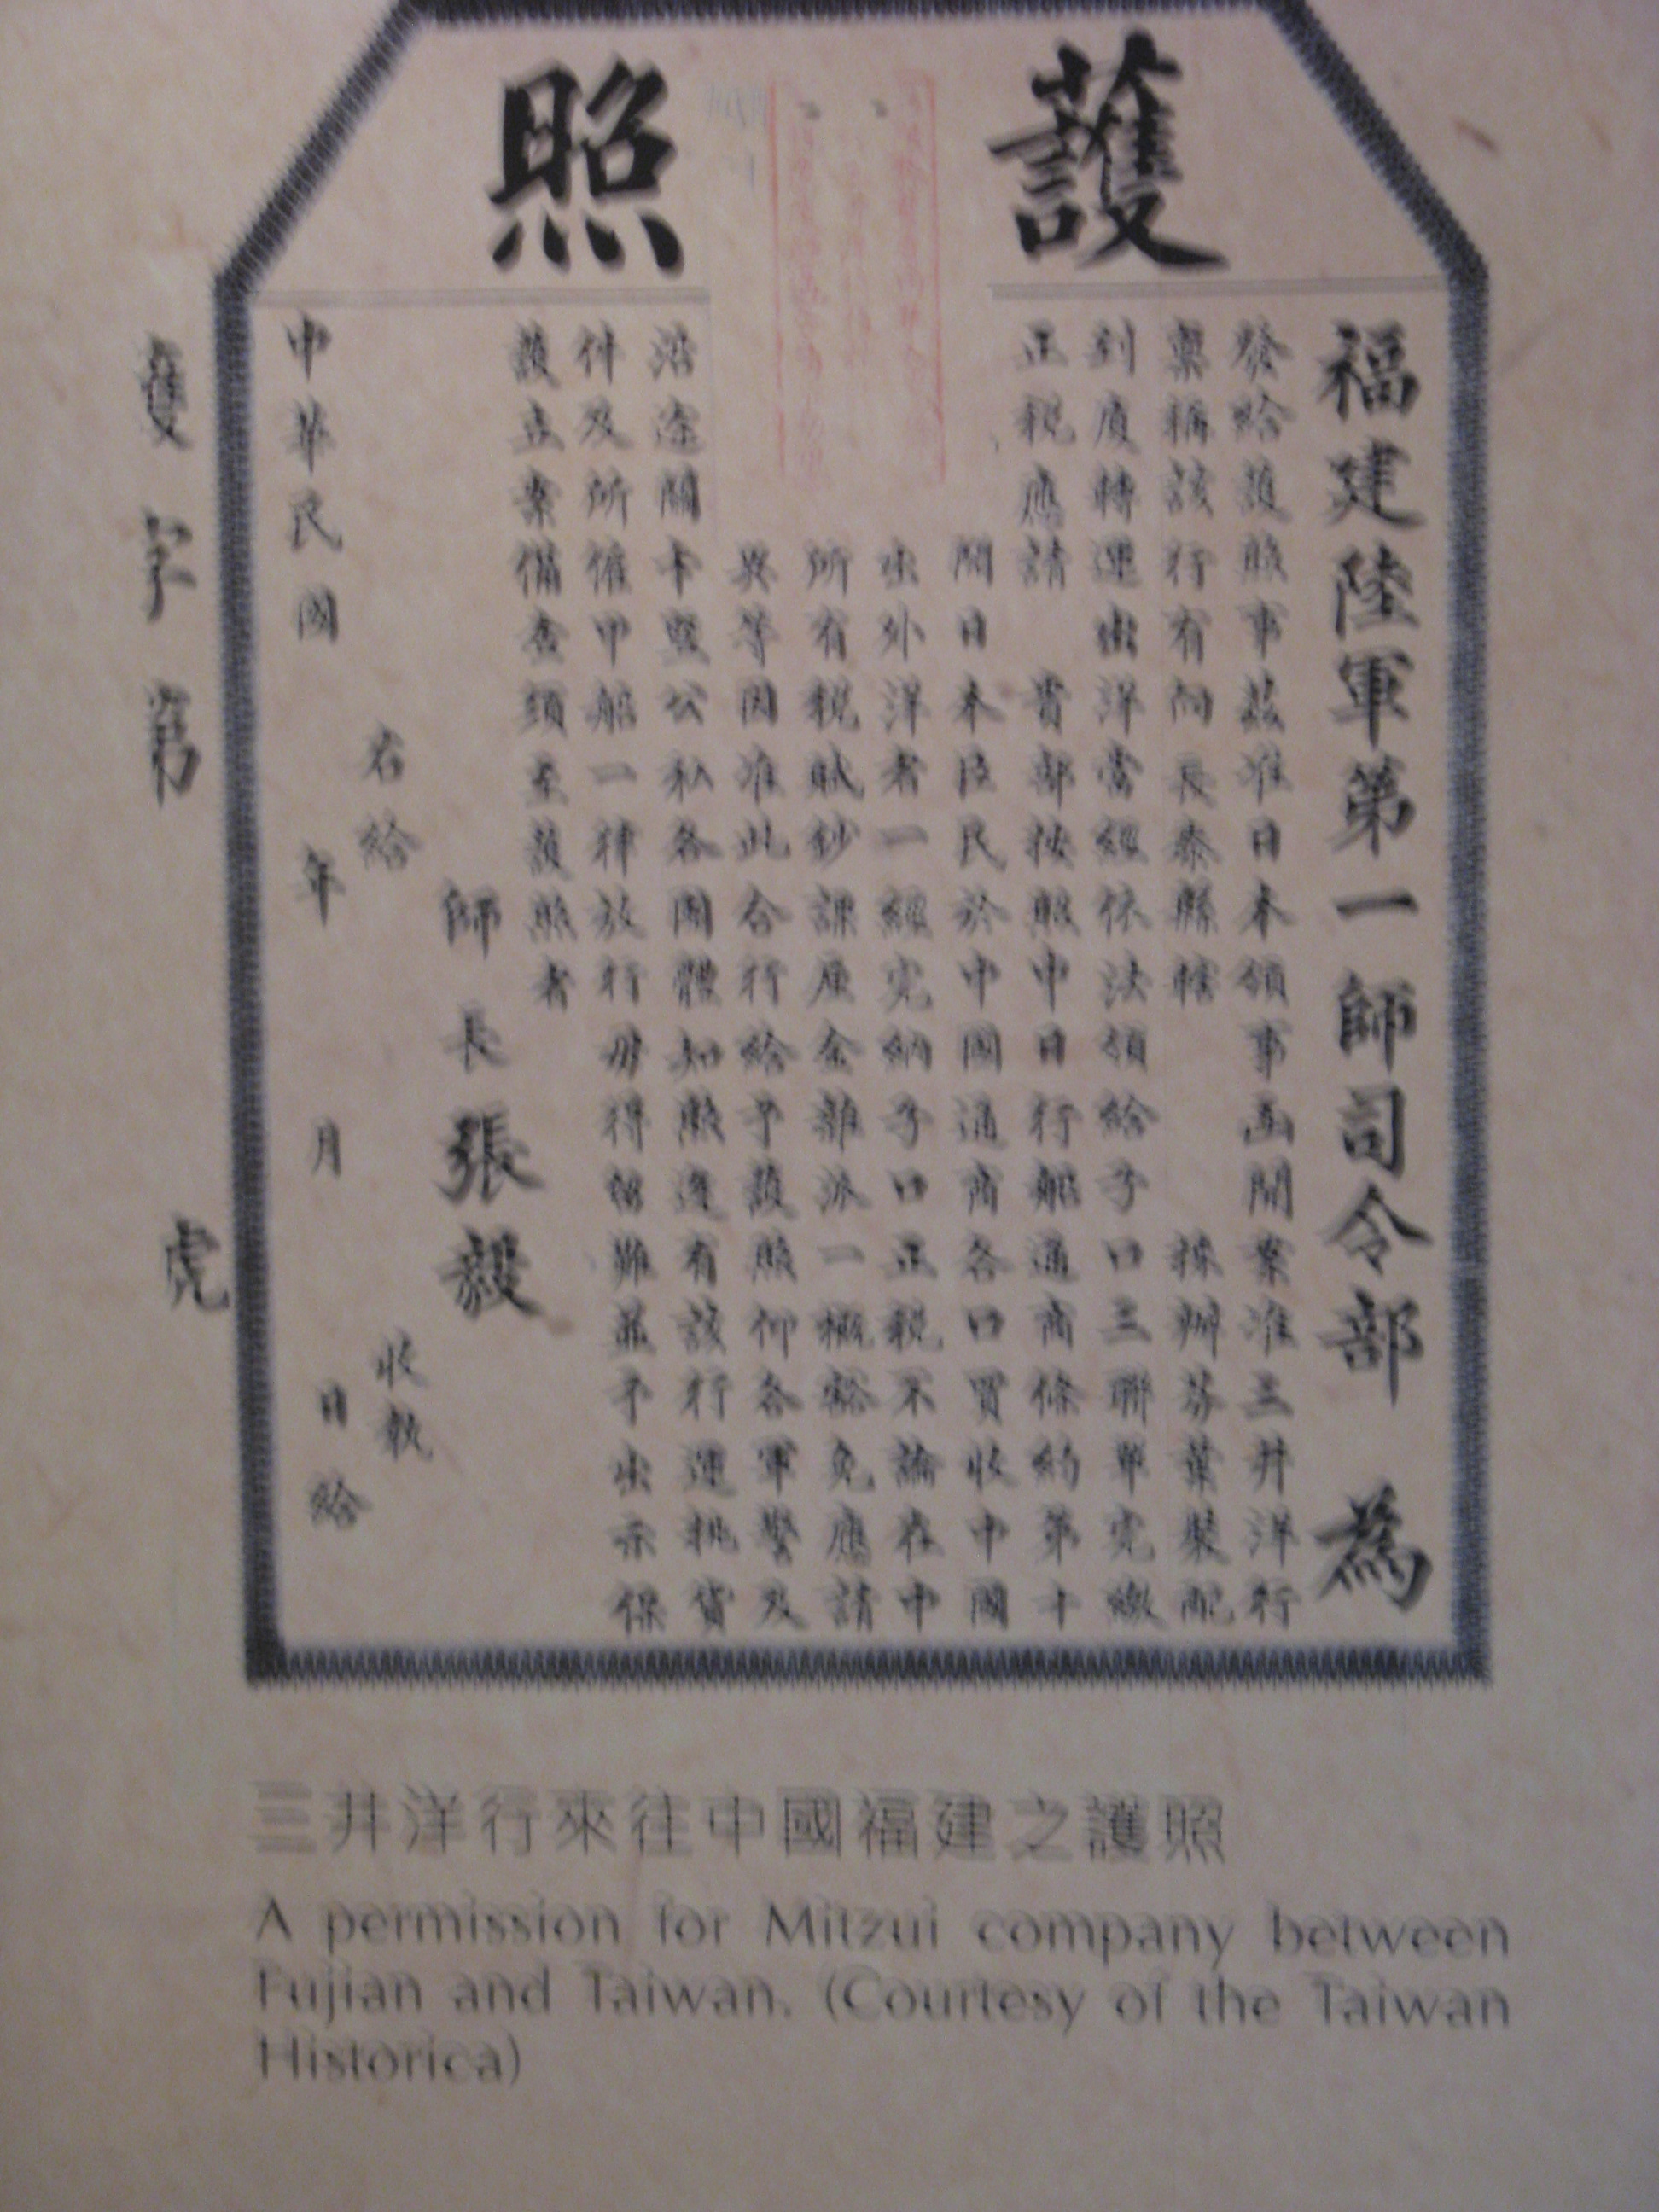 護照
福建陸軍第一師司令部 為
發給護照事茲准日本領事函開案准三井洋行
稟稱該行有向長泰縣轄 採辦芬葉裝配
到廈轉運出洋當經依法領給子口三聯單完繳
正稅應請 貴部按照中日行船通商條約第十
閱日本臣民於中國通商各口買收中國
出外洋者一經完納子口正稅不論在中
所有稅賦鈔課厘金雜派一概豁免應請
異等因准此合行給予護照仰各軍警及
沿途關卡暨公私各團體知照逢有該行運批貨
件及所僱甲船一律放行毋得留難並予出示保
護立案備查須至護照者
師長張毅
右給 收執
中華民國 年 月 日給
雙字第 號
三井洋行來往中國福建之護照
A permission for Mitzui company between
Fujian and Taiwan. (Courtesy of the Taiwan
Historica)